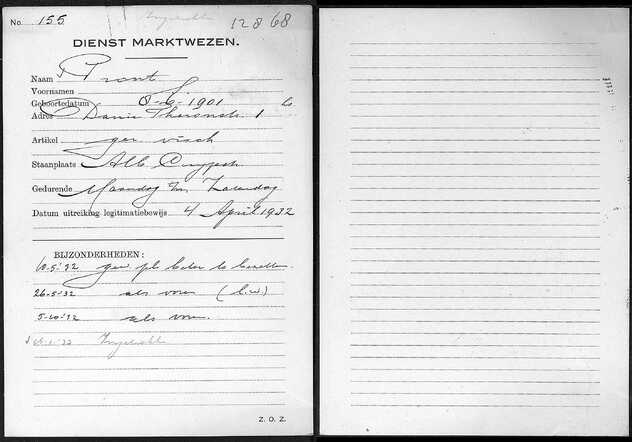 No. 155 Ingetrokken 12868
DIENST MARKTWEZEN.
Naam Pront
Voornamen J.
Geboortedatum 8-6-1901
Adres Danie Theronstr. 1
Artikel ger. visch
Staanplaats Alb. Cuypstr.
Gedurende Maandag t/m Zaterdag
Datum uitreiking legitimatiebewijs 4 April 1932
BIJZONDERHEDEN:
10-5-'32 gew. pl. beter te bezetten
26-5-'32 als voren (l.w.)
5-10-'32 als voren.
Ingetrokken
Z. O. Z.